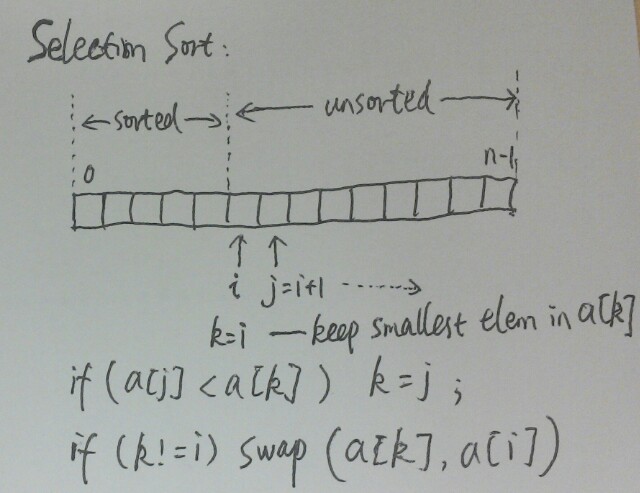 Selection Sort:
sorted unsorted
0 n-1
i j=i+1
k=i — keep smallest elem in a[k]
if (a[j] < a[k]) k=j;
if (k!=i) swap (a[k], a[i])